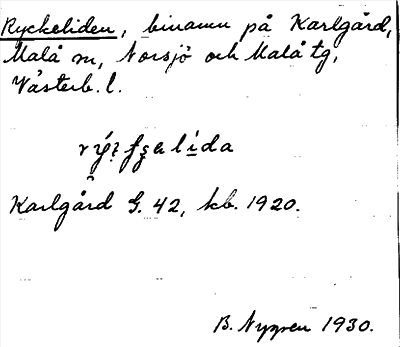 Ryckeliden, binamn på Karlgård,
Malå sn, Norsjö och Malå tg,
Västerb. l.
Karlgård G. 42, kb. 1920.
B. Nygren 1930.